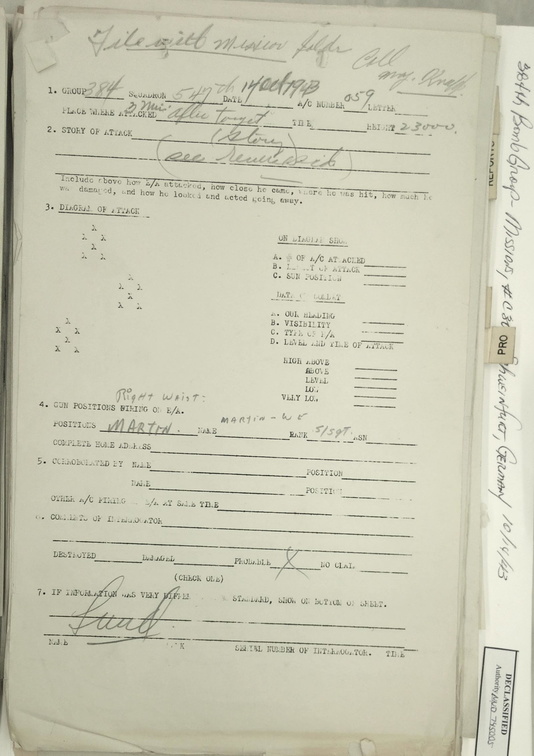 File with mission folder
Call
Maj. Knapp
1. GROUP 384 SQUADRON 547th DATE 14 Oct 1943 A/C NUMBER 059 LETTER
PLACE WHERE ATTACKED 3 Min after target TIME HEIGHT 23000.
2. STORY OF ATTACK (Story)
(see reverse side)
Include above how E/A attacked, how close he came, where he was hit, how much he
was damaged, and how he looked and acted going away.
3. DIAGRAM OF ATTACK
X
X X
X X
X
X X
X
X X
X
X X
ON DIAGRAM SHOW
A. # OF A/C ATTACKED
B. OF ATTACK
C. SUN POSITION
A. OUR HEADING
B. VISIBILITY
C. TYPE OF E/A
D. LEVEL AND TIME OF ATTACK
HIGH ABOVE
ABOVE
LEVEL
LOW
VERY LOW
Right Waist:
4. GUN POSITIONS FIRING ON E/A.
POSITIONS MARTIN. NAME MARTIN - W E RANK S/Sgt. ASN
COMPLETE HOME ADDRESS
5. CORROBORATED BY NAME POSITION
NAME POSITION
OTHER A/C FIRING E/A AT SAME TIME
6. COMMENTS OF INTERROGATOR
DESTROYED DAMAGED PROBABLE X NO CLAIM
(CHECK ONE)
7. IF INFORMATION WAS VERY STANDARD, SHOW ON BOTTOM OF SHEET.
NAME SERIAL NUMBER OF INTERROGATOR. TIME
384th Bomb Group Missions, Schweinfurt, Germany 10/14/43
REPORTS
PRO
DECLASSIFIED
Authority